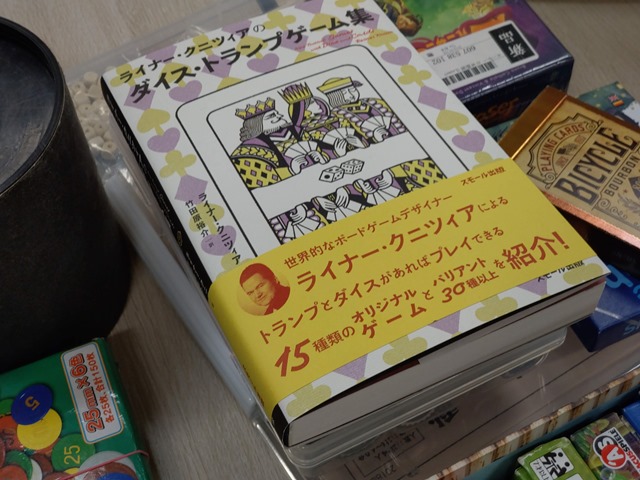 ライナー・クニツィアの
ダイス・トランプゲーム集
ライナー・クニツィア
竹田原裕介 訳
世界的なボードゲームデザイナー
スモール出版
ライナー・クニツィアによる
トランプとダイスがあればプレイできる
15種類のオリジナルゲームとバリアント30種以上を紹介!
スモール出版
新品
PLAYING CARDS
BICYCLE
25mm×6色
各25枚 合計150枚
5
25